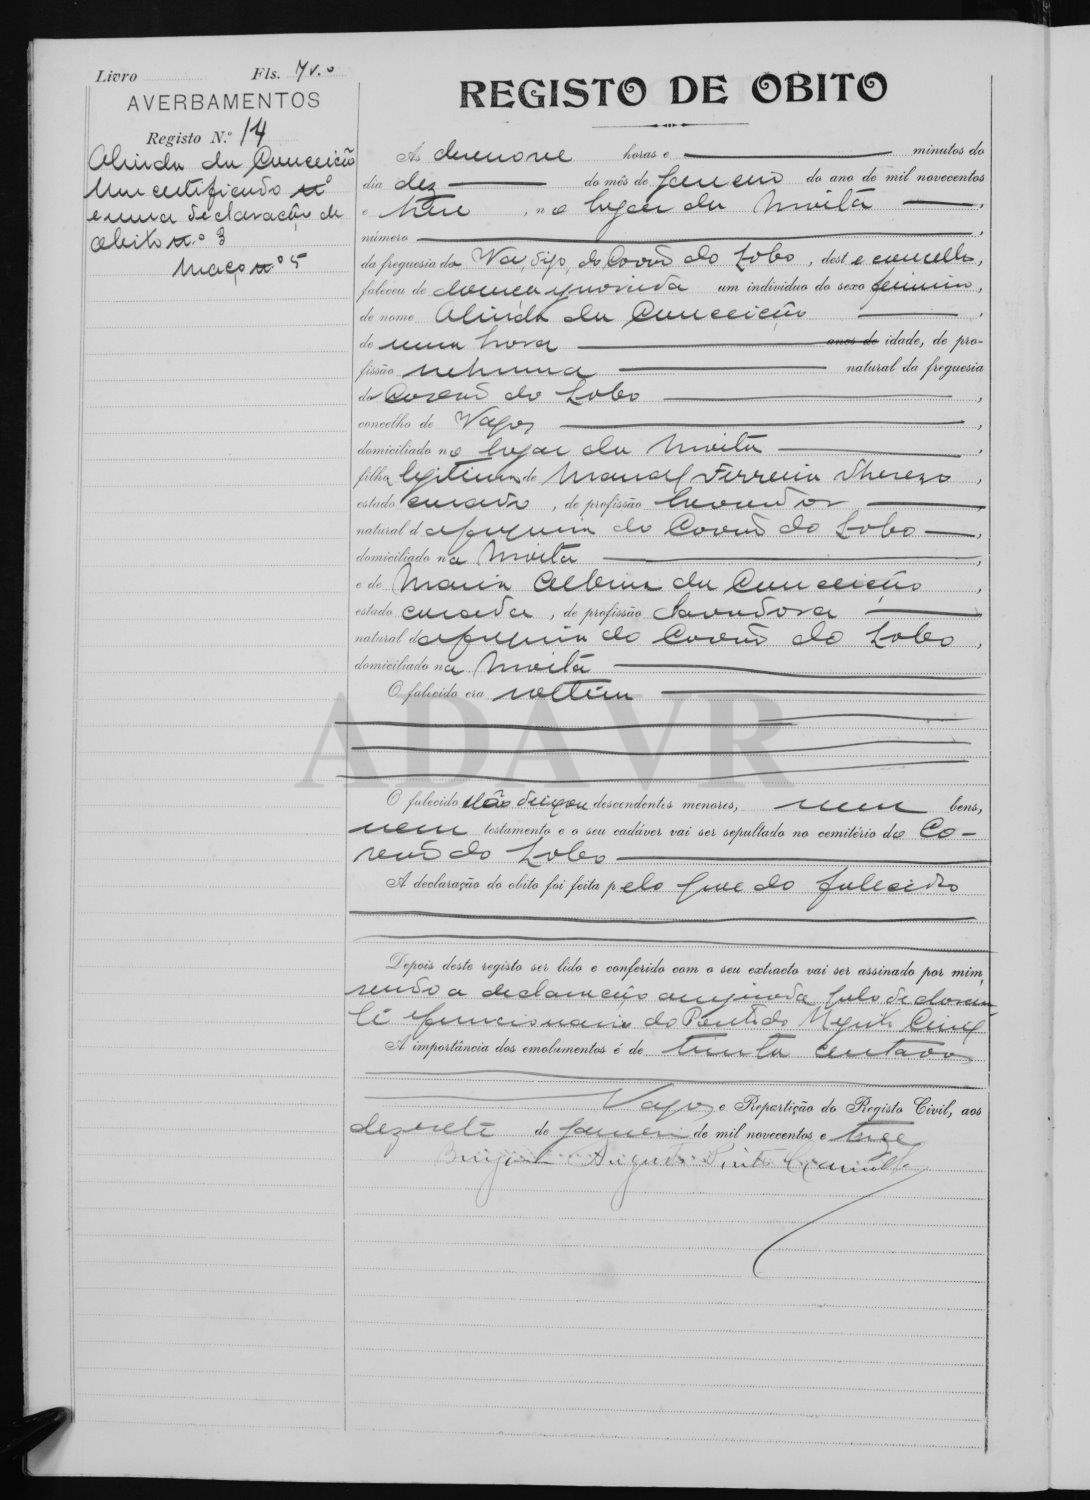 Livro Fls. 7 v.o
AVERBAMENTOS
Registo N.º 14
Alinda da Conceição
Um certificado nº
e uma declaração de
obito n.º 3
Maço nº 5
REGISTO DE OBITO
Ás dezenove horas e minutos do
dia dez do mês de Janeiro do ano de mil novecentos
e treze, no logar da Moita,
número
da freguesia da Va, digo, do Covão do Lobo, deste concelho,
faleceu de doença ignorada um individuo do sexo feminino,
de nome Alinda da Conceição,
de uma hora anos de idade, de pro-
fissão nenhuma natural da freguesia
do Covão do Lobo,
concelho de Vagos,
domiciliado no logar da Moita,
filha legitima de Manoel Ferreira Therezo,
estado casado, de profissão lavrador,
natural da freguesia do Covão do Lobo,
domiciliado na Moita,
e de Maria Albina da Conceição,
estado casada, de profissão lavradora,
natural da freguesia do Covão do Lobo,
domiciliado na Moita
O falecido era solteira
ADAVR
O falecido não deixou descendentes menores, nem bens,
nem testamento e o seu cadáver vai ser sepultado no cemitério do Co-
vão do Lobo
A declaração do obito foi feita pelo pae do falecido
Depois deste registo ser lido e conferido com o seu extracto vai ser assinado por mim,
sendo a declaração pelo declaran-
te funcionario do Registo Civil
A importância dos emolumentos é de trinta centavos
Vagos e Repartição do Registo Civil, aos
dezesete de Janeiro de mil novecentos e treze
Augusto Pinto